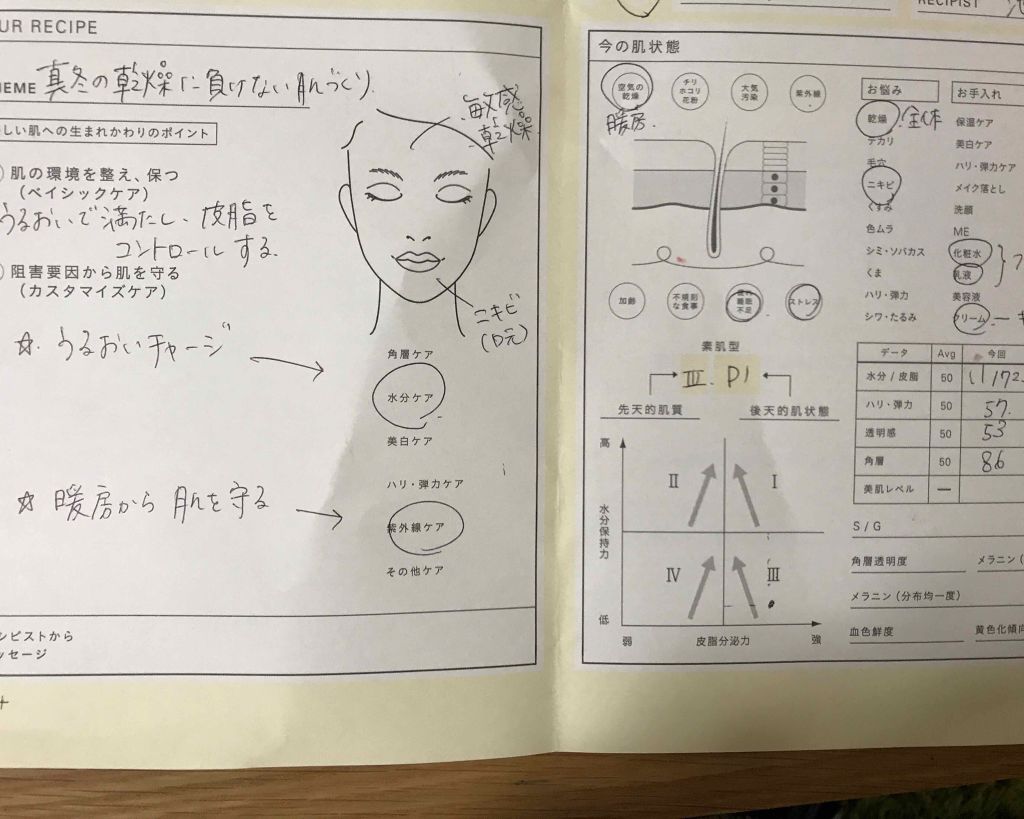 UR RECIPE
EME 真冬の乾燥に負けない肌づくり.
しい肌への生まれかわりのポイント
肌の環境を整え、保つ
(ベイシックケア)
うるおいで満たし、皮脂を
コントロールする.
阻害要因から肌を守る
(カスタマイズケア)
☆. うるおいチャージ
☆ 暖房から 肌を守る
敏感
乾燥
ニキビ
(口元)
角層ケア
水分ケア
美白ケア
ハリ・弾力ケア
紫外線ケア
その他ケア
ピストから
セージ
RECIPIST
今の肌状態
空気の
乾燥
チリ
ホコリ
花粉
大気
汚染
紫外線
暖房.
加齢
不規則
な食事
睡眠
不足
ストレス
素肌型
III. D1
先天的肌質
後天的肌状態
高
水分保持力
低
II
I
IV
III
弱
皮脂分泌力
強
お悩み
乾燥 全体
テカリ
毛穴
ニキビ
くすみ
色ムラ
シミ・ソバカス
くま
ハリ・弾力
シワ・たるみ
お手入れ
保湿ケア
美白ケア
ハリ・弾力ケア
メイク落とし
洗顔
ME
化粧水
乳液
美容液
クリーム
データ Avg 今回
水分 / 皮脂 50 11/172
ハリ・弾力 50 57.
透明感 50 53
角層 50 86
美肌レベル ー
S / G
角層透明度
メラニン (
メラニン (分布均一度)
血色鮮度
黄色化傾向